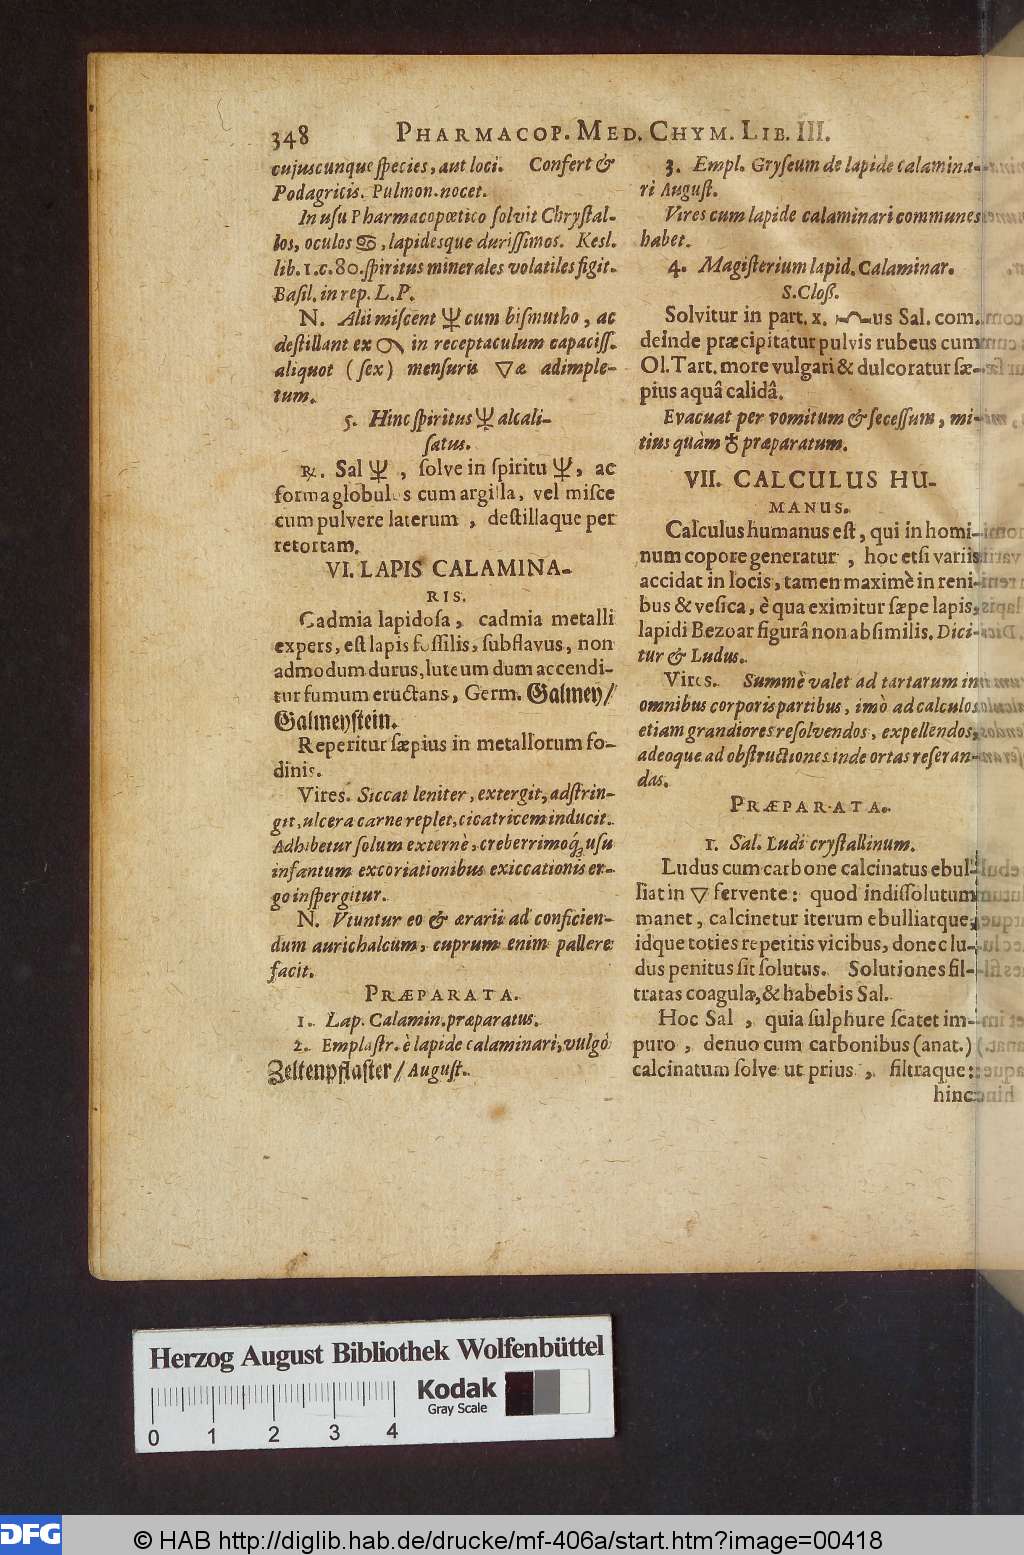 348 PHARMACOP. MED. CHYM. LIB. III.
cujuscunque ſpecies, aut loci. Confert &
Podagricis. Pulmon. nocet.
In uſu Pharmacopœtico ſolvit Chryſtal-
los, oculos ♋, lapidesque duriſſimos. Kesl.
lib. 1. c. 80. ſpiritus minerales volatiles figit.
Baſil. in rep. L.P.
N. Alii miſcent 🜕 cum biſmutho, ac
deſtillant ex in receptaculum capaciſſ.
aliquot (ſex) menſuris ▽æ adimple-
tum.
5. Hinc ſpiritus 🜕 alcali-
ſatus.
℞. Sal 🜕, ſolve in ſpiritu 🜕, ac
forma globulos cum argilla, vel miſce
cum pulvere laterum, deſtillaque per
retortam.
VI. LAPIS CALAMINA-
RIS.
Cadmia lapidoſa, cadmia metalli
expers, eſt lapis foſſilis, ſubflavus, non
admodum durus, luteum dum accendi-
tur fumum eructans, Germ. Galmey/
Galmeyſtein.
Reperitur ſæpius in metallorum fo-
dinis.
Vires. Siccat leniter, extergit, adſtrin-
git, ulcera carne replet, cicatricem inducit.
Adhibetur ſolum externè, creberrimoq́; uſu
infantum excoriationibus exiccationis er-
go inſpergitur.
N. Vtuntur eo & ærarii ad conficien-
dum aurichalcum, cuprum enim pallere
facit.
PRÆPARATA.
1. Lap. Calamin. præparatus.
2. Emplaſtr. è lapide calaminari, vulgò
Zeltenpflaſter/ Auguſt.
3. Empl. Gryſeum de lapide calamina-
ri Auguſt.
Vires cum lapide calaminari communes
habet.
4. Magiſterium lapid. Calaminar.
S. Cloß.
Solvitur in part. x. us Sal. com.
deinde præcipitatur pulvis rubeus cum
Ol. Tart. more vulgari & dulcoratur ſæ-
pius aquâ calidâ.
Evacuat per vomitum & ſeceſſum, mi-
tius quàm ♁ præparatum.
VII. CALCULUS HU-
MANUS.
Calculus humanus eſt, qui in homi-
num copore generatur, hoc etſi variis
accidat in locis, tamen maximè in reni-
bus & veſica, è qua eximitur ſæpe lapis,
lapidi Bezoar figurâ non abſimilis. Dici-
tur & Ludus.
Vires. Summè valet ad tartarum in
omnibus corporis partibus, imò ad calculos
etiam grandiores reſolvendos, expellendos,
adeoque ad obſtructiones inde ortas reſeran-
das.
PRÆPARATA.
1. Sal. Ludi cryſtallinum.
Ludus cum carbone calcinatus ebul-
liat in ▽ fervente: quod indiſſolutum
manet, calcinetur iterum ebulliatque,
idque toties repetitis vicibus, donec lu-
dus penitus ſit ſolutus. Solutiones fil-
tratas coagula, & habebis Sal.
Hoc Sal, quia ſulphure ſcatet im-
puro, denuo cum carbonibus (anat.)
calcinatum ſolve ut prius, filtraque:
hinc
Herzog August Bibliothek Wolfenbüttel
Kodak
Gray Scale
0 1 2 3 4
DFG
© HAB http://diglib.hab.de/drucke/mf-406a/start.htm?image=00418